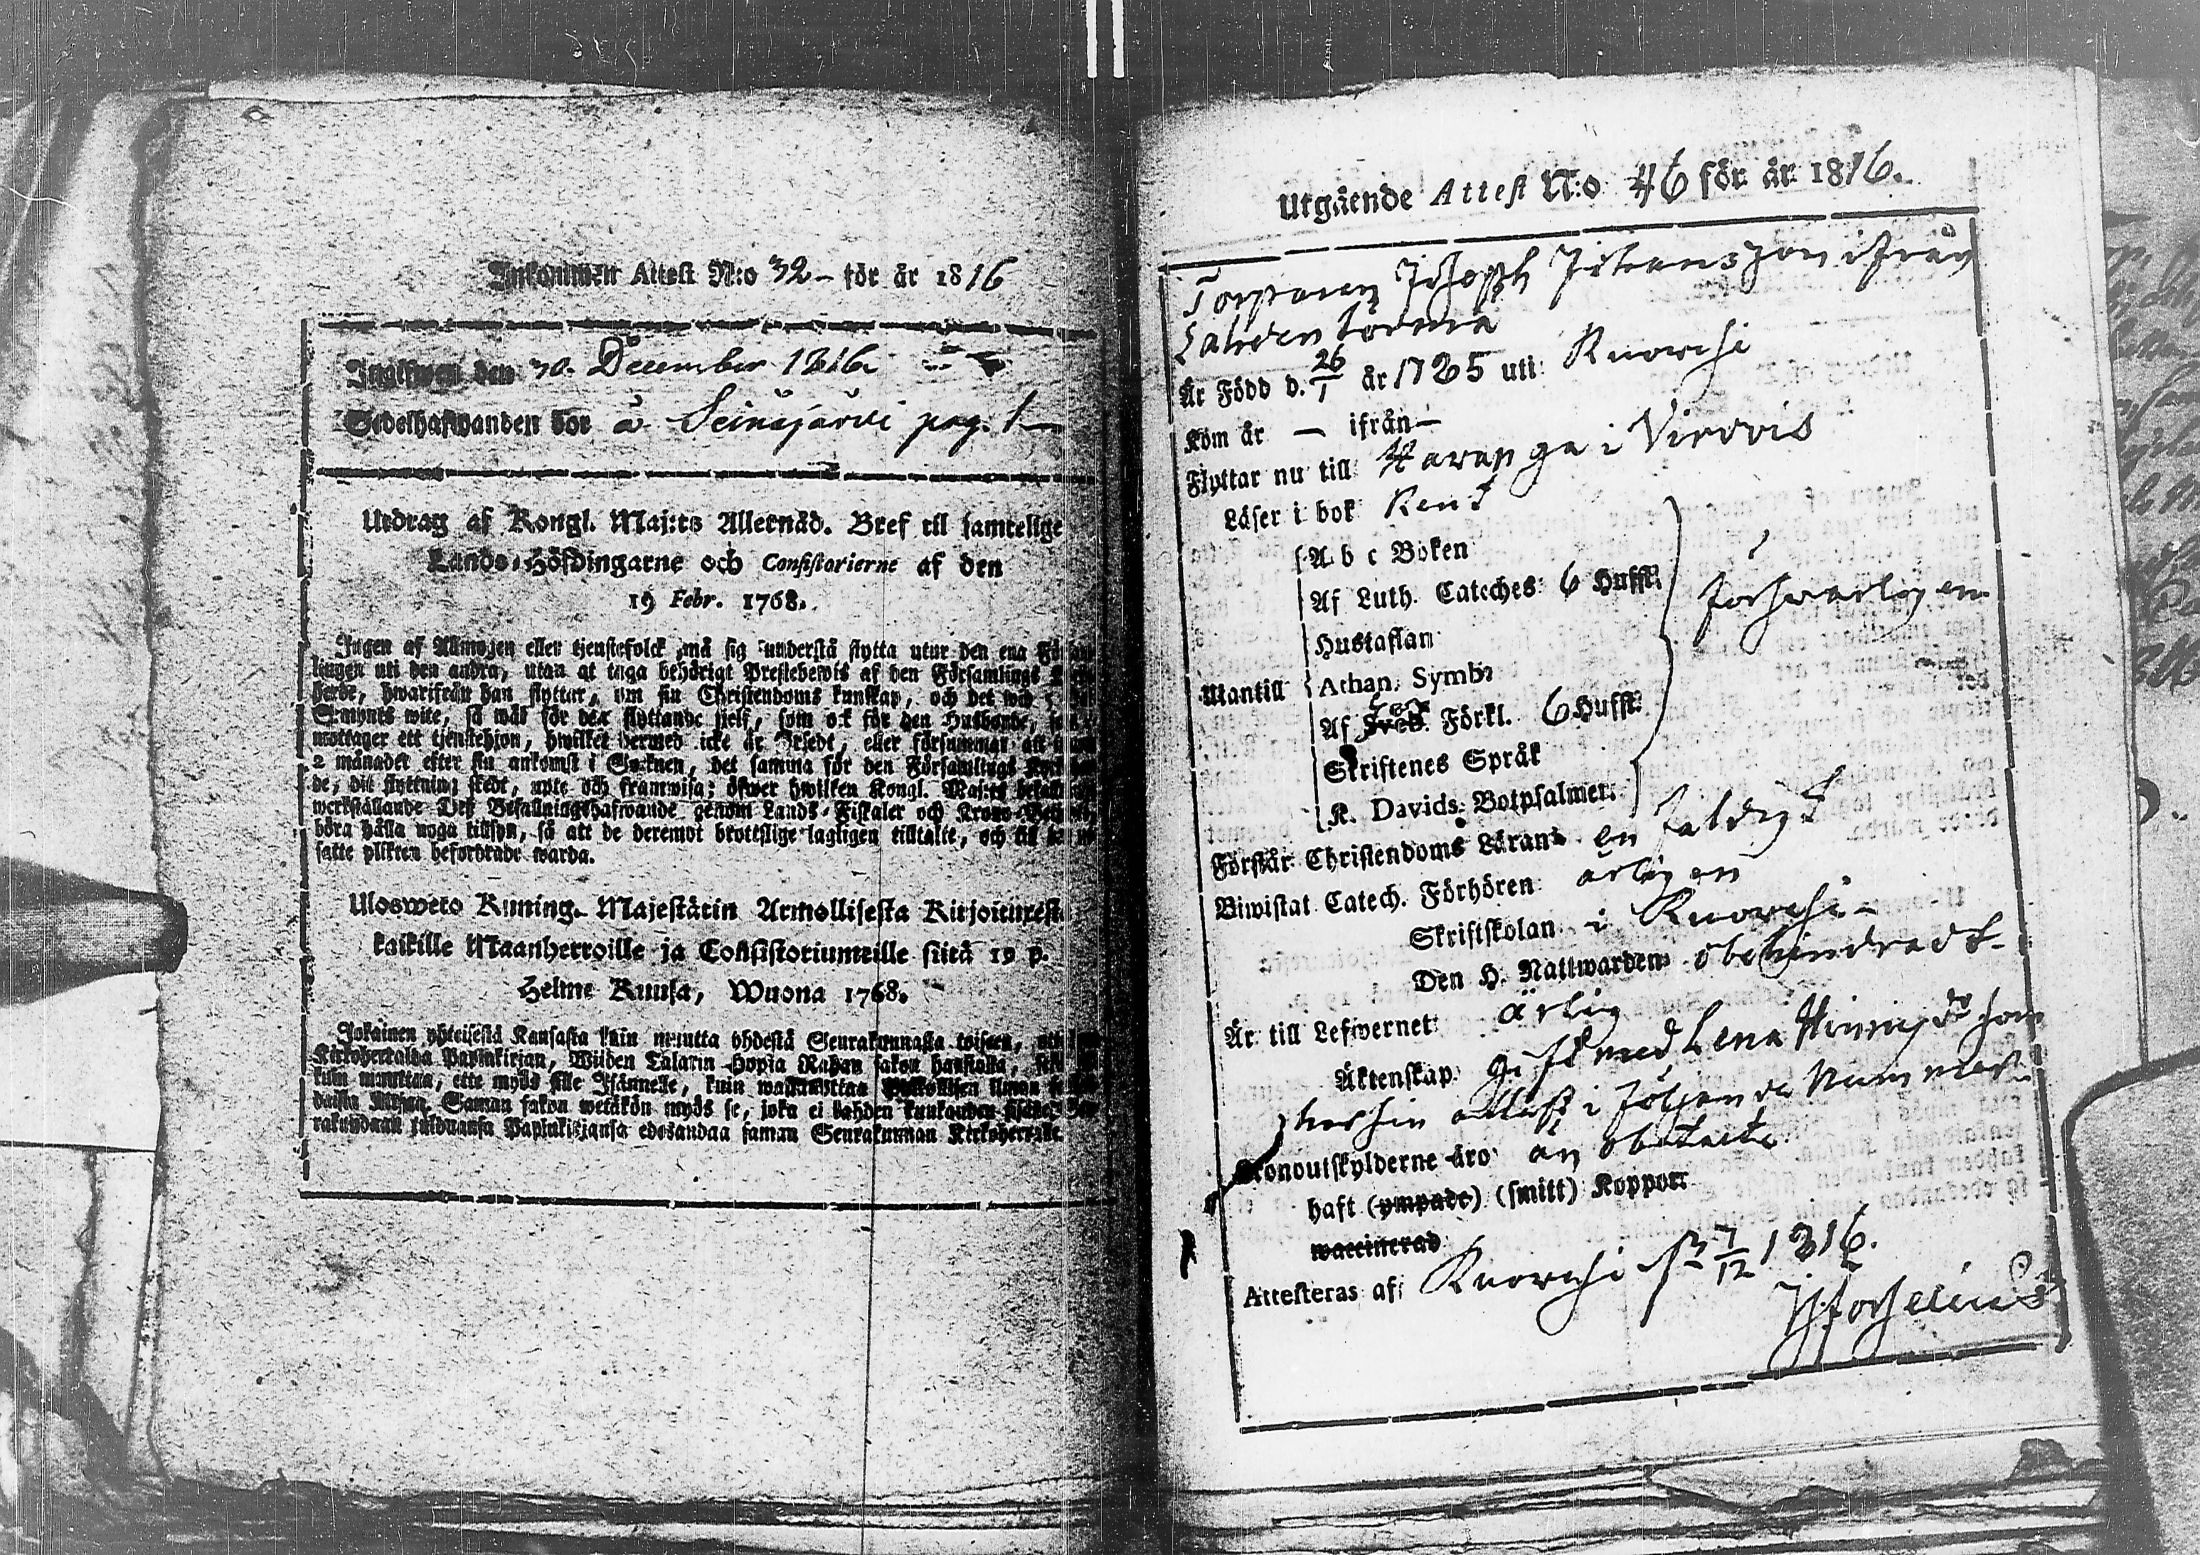 Inkommen Attest N:o 32 – för år 1816
Inkommen den 30. December 1816.
Sedelhafwanden bor å Seinäjärvi pag. 1
Utdrag af Kongl. Maj:ts Allernåd. Bref til samtelige
Lands-Höfdingarne och Consistorierne af den
19 Febr. 1768.
Ingen af Allmogen eller tjenstefolck må sig understå flytta utur den ena
uti den andra, utan at taga behörigt Prestebewis af den Församlings
herde, hwarifrån han flyttar, om sin Christendoms kunskap, och det wid
Srmynts wite, så wäl för den flyttande sjelf, som ock för den Husbonde,
mottager ett tjenstehjon, hwilket dermed icke är försedt, eller försummar att
2 månader efter sin ankomst i Socknen, det samma för den Församlings
de, dit flyttning skedt, upte och framwisa; öfwer hwilken Kongl. Maj:ts
werkställande Dess Befallningshafwande genom Lands-Fiskaler och Krono-
böra hålla noga tillsyn, så att de deremot brottslige lagligen tilltalte, och til
satte plikten befordrade warda.
Ulosweto Kuning. Majestätin Armollisesta Kirjoituxest
kaikille Maanherroille ja Consistoriumeille siitä 19 p.
Helme Kuusa, Wuona 1768.
Jokainen yhteisestä Kansasta kuin muutta yhdestä Seurakunnasta toiseen,
Kirkoherralda Papinkirjan, Wiiden Talarin Hopia Rahan sakon haastolla,
kuin muuttaa, ette myös sille Isännelle, kuin
Saman sakon wetäkön myös se, joka ei kahden kuukauden
Papinkirjansa edesandaa saman Seurakunnan Kirkoherralle.
Utgående Attest N:o 46 för år 1816.
Torparen Joseph Johansson ifrån
Lahdentörmä
Är Född d. 26/1 år 1785 uti Ruovesi
Kom år — ifrån —
Flyttar nu till Haranga i Virdois
Läser i bok Rent
A b c Boken
Af Luth. Cateches 6 Hufst.
Hustaflan
Athan. Symb.
Utantill
Af Sveb. Förkl. 6 Hufst.
Skriftenes Språk
K. Davids Botpsalmer.
försvarligen
Förstår Christendoms Läran enfaldigt
Biwistat Catech. Förhören årligen
Skriftskolan i Ruovesi –
Den H. Nattwarden obehindradt –
Är till Lefwernet ärlig
Äktenskap gift med Lena som
har sin attest i följande Nummer
Kronoutskylderne äro än obetalte
haft (ympade) (smitt) Koppor
waccinerad
Attesteras af Ruovesi 7/12 1816.